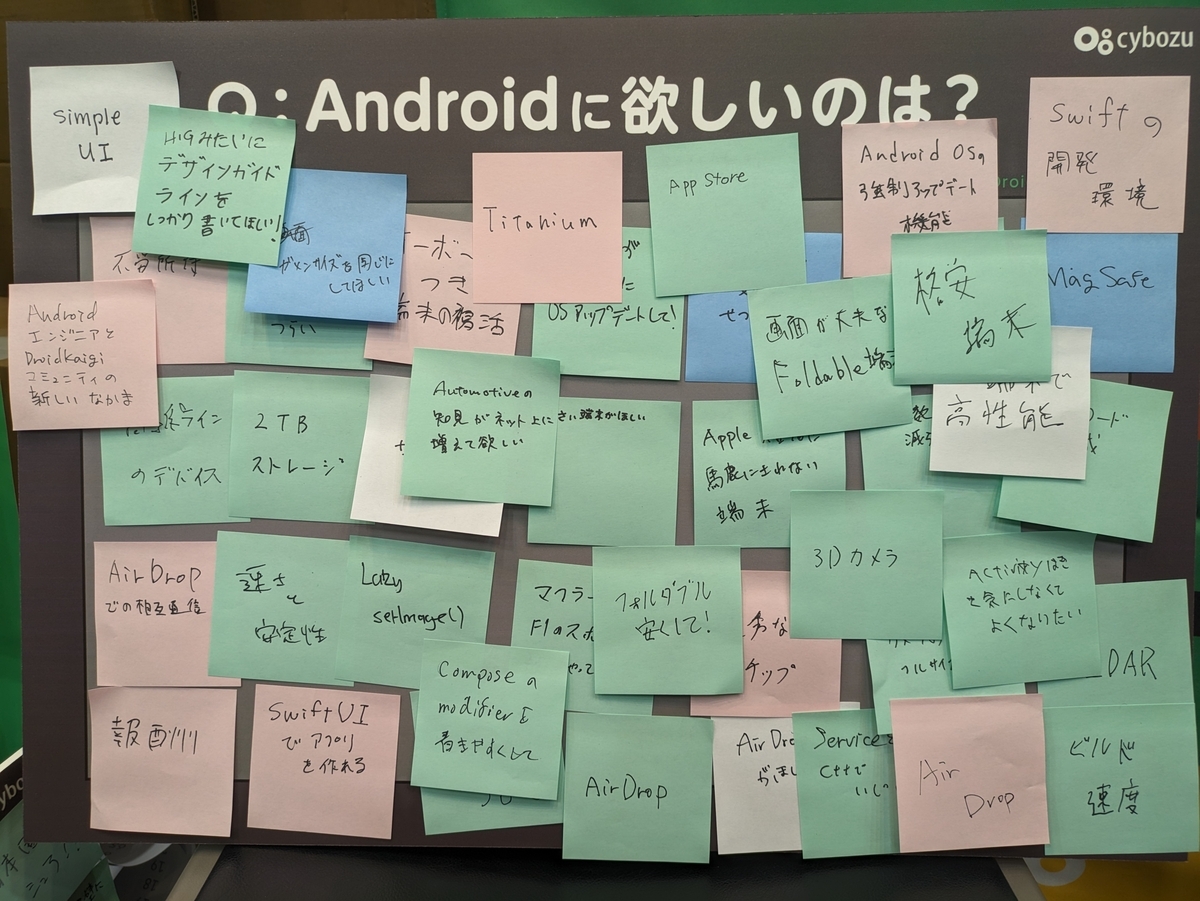 cybozu
Q：Androidに欲しいのは？
simple
UI
HIGみたいに
デザインガイド
ラインを
しっかり書いてほしい！
画面
サイズを同じに
してほしい
Titanium
App Store
Android OSの
強制アップデート
機能
Swiftの
開発
環境
つらい
つき
端末の復活
OSアップデートして！
画面が大丈夫な
Foldable端末
格安
端末
MagSafe
Android
エンジニアと
DroidKaigi
コミュニティの
新しいなかま
ライン
のデバイス
2TB
ストレージ
Automotiveの
知見がネット上に
増えて欲しい
さい端末がほしい
Apple
馬鹿にされない
端末
端末で
高性能
AirDrop
での相互通信
速さと
安定性
Lazy
setImage()
マフラー
F1の
フォルダブル
安くして！
チップ
3Dカメラ
Activityほぼ
と気にしなくて
よくなりたい
DAR
報酬
SwiftUI
でアプリ
を作れる
Composeの
modifierを
書きやすくして
5G
AirDrop
AirDro
がほし
Service
C++で
いじ
Air
Drop
ビルド
速度